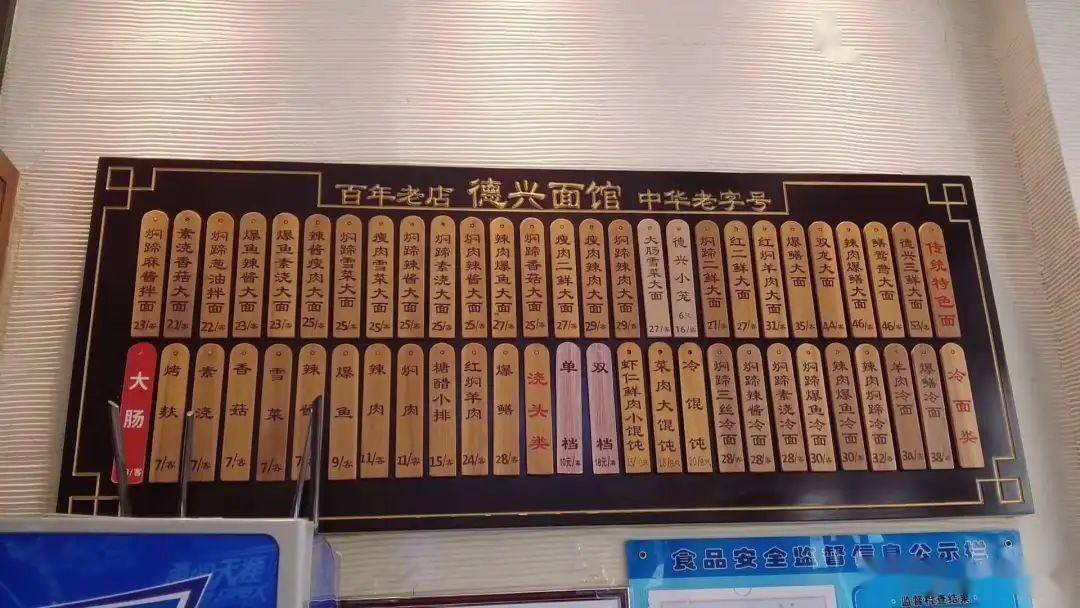 百年老店 德兴面馆 中华老字号
传统特色面
德兴三鲜大面 53/客
鳝鸳鸯大面 46/客
辣肉爆鳝大面 46/客
双龙大面 44/客
爆鳝大面 35/客
红焖羊肉大面 31/客
红二鲜大面 27/客
焖蹄二鲜大面 27/客
德兴小笼 6只 16/客
大肠雪菜大面 27/客
焖蹄辣肉大面 29/客
瘦肉辣肉大面 29/客
瘦肉二鲜大面 27/客
焖蹄香菇大面 25/客
辣肉爆鱼大面 27/客
焖肉辣酱大面 25/客
焖蹄素浇大面 25/客
焖蹄辣酱大面 25/客
瘦肉雪菜大面 25/客
焖蹄雪菜大面 25/客
辣酱瘦肉大面 25/客
爆鱼素浇大面 23/客
爆鱼辣酱大面 23/客
焖蹄葱油拌面 22/客
素浇香菇大面 21/客
焖蹄麻酱拌面 23/客
冷面类
爆鳝冷面 38/客
羊肉冷面
辣肉焖蹄冷面 32/客
辣肉爆鱼冷面 30/客
焖蹄爆鱼冷面 30/客
焖蹄素浇冷面 28/客
焖蹄辣酱冷面 28/客
焖蹄三丝冷面 28/客
冷馄饨
菜肉大馄饨
虾仁鲜肉小馄饨
双档 18元/客
单档 10元/客
浇头类
爆鳝 28/客
红焖羊肉 24/客
糖醋小排 15/客
肉 11/客
辣肉 11/客
爆鱼 9/客
辣
雪菜 7/客
香菇 7/客
素浇 7/客
烤麸 7/客
大肠
食品安全监督信息公示栏
监督检查结果